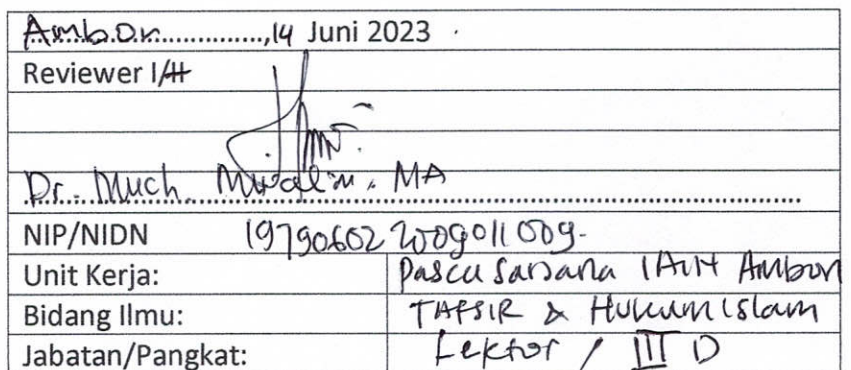 Ambon..............,14 Juni 2023
Reviewer I/II
Dr. Much. MA
NIP/NIDN 19790602 2009011009.
Unit Kerja: Pascasarjana IAIN Ambon
Bidang Ilmu: TAFSIR & Hukum Islam
Jabatan/Pangkat: Lektor / III D